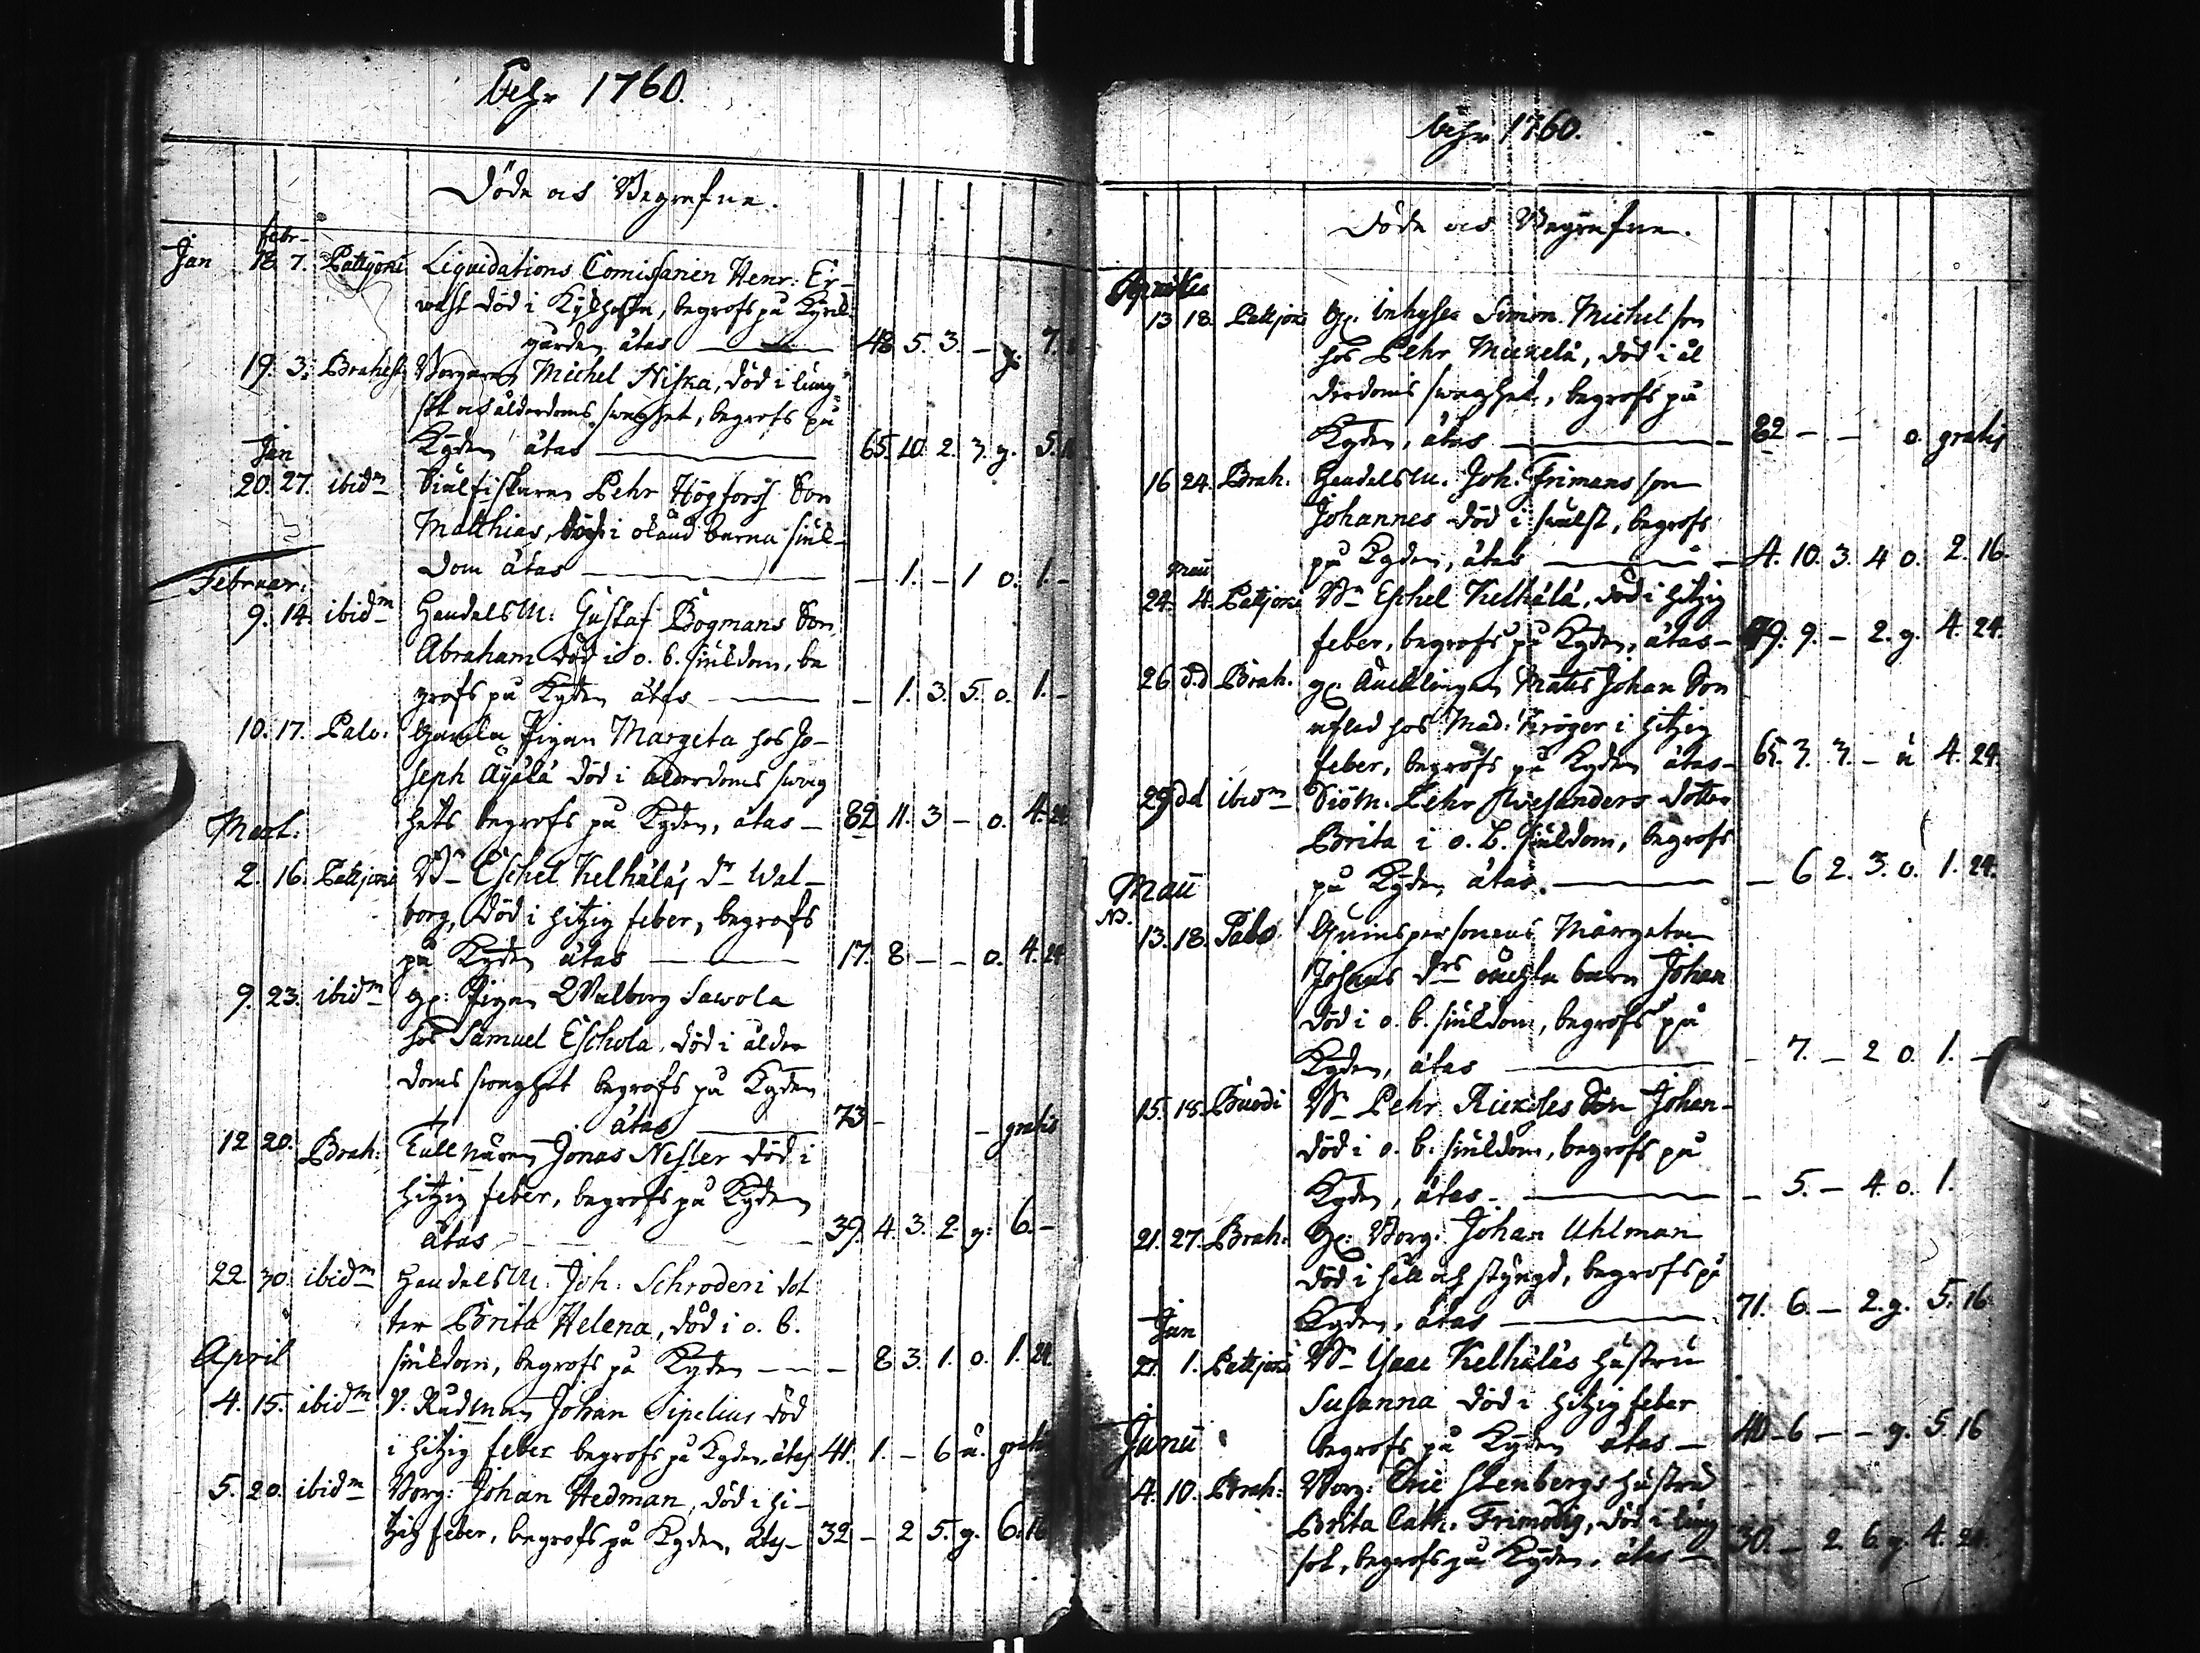 Åhr 1760.
Döde och Begrafne.
Jan febr.
18. 7. Pattjoki Liquidations Comissarien Henr: Er-
wast död i , begrofs på Kyrck-
gården ätas 48 5. 3. - g. 7.
19. 3. Brahest. Borgaren Michel Niska, död i lung-
sot och ålderdoms swaghet, begrofs på
Kgden ätas 65. 10. 2. 3. g. 5.
Jan
20. 27. ibidm Siälfiskaren Pehr Högforss Son
Matthias, död i okänd barna siuk-
dom ätas - 1. - 1 o. 1. -
Februar.
9. 14. ibidm HandelsM: Gustaf Bogmans Son
Abraham död i o. b. siukdom, be
grofs på Kgden ätas - 1. 3. 5. o. 1. -
10. 17. Palo. Gamla Pigan Margeta hos Jo-
seph Äijälä död i ålderdoms swag
hets begrofs på Kgden, ätas - 82 11. 3 - o. 4. 24
Mart.
2. 16. Pattjoki Bn Eschel Kelhäläs dr Wal-
borg, död i hitzig feber, begrofs
på Kgden ätas 17. 8 - - o. 4. 24
9. 23. ibidm gl: Pigan Walborg Sawola
hos Samuel Eschola, död i ålder
doms swaghet begrofs på Kgden
ätas 73 - - gratis
12 20. Brah: Tullnären Jonas Nesler död i
hitzig feber, begrofs på Kgden
ätas 39. 4. 3. 2. g: 6. -
22 30. ibidm HandelsM: Joh: Schroderi dot
ter Brita Helena, död i o. b.
siukdom, begrofs på Kgden - 8 3. 1. o. 1. 24.
April
4. 15. ibidm V. Rådman Johan Sipelius död
i hitzig feber begrofs på Kgden, ätas 41. 1. - 6 u. gratis
5. 20. ibidm Borg: Johan Hedman, död i hi-
tzig feber, begrofs på Kgden, ätas 32 - 2 5. g. 6. 16
Åhr 1760.
Döde och Begrafne.
Aprilis
13 18. Pattjoki gl. Inhyses Simon Michelson
hos Pehr Mickelä, död i ål
derdoms swaghet, begrofs på
Kgden, ätas - 82 - - o. gratis
16 24. Brah. HandelsM. Joh: Frimans son
Johannes död i swulst, begrofs
på Kgden, ätas - 4. 10. 3. 4 o. 2. 16.
Maii
24. 4. Pattjoki Bn Eschel Kelhälä, död i hitzig
feber, begrofs på Kgden, ätas - 49. 9. - 2. g. 4. 24.
26 d.d Brah. gl. Mats Johan Son
hos Mad: Kröger i hitzig
feber, begrofs på Kgden ätas - 65. 3. 3. - u 4. 24.
29 dd ibidm SiöM. Pehr dotter
Brita i o. b. siukdom, begrofs
på Kgden, ätas. - 6 2. 3. o. 1. 24.
Maii
NB.
13. 18. Palo Quinspersonens Margeta
Johans drs oächta barn Johan
död i o. b. siukdom, begrofs på
Kgden, ätas - 7. - 2 o. 1. -
15. 18. Buodi Bn Pehr Son Johan
död i o. b. siukdom, begrofs på
Kgden, ätas - 5. - 4. o. 1.
21. 27. Brah. gl: Borg. Johan Uhlman
död i håll och styngd, begrofs på
Kgden, ätas 71. 6. - 2. g. 5. 16.
Jun
27. 1. Pattjoki Bn Isaac Kelhäläs hustru
Susanna död i hitzig feber
begrofs på Kgden ätas - 40. 6 - - g. 5 16
Junii
4. 10. Brah: Borg: Eric Stenbergs hustru
Brita Cath. Frimodig, död i lung
sot, begrofs på Kgden, ätas - 30. - 2. 6. g. 4. 24.